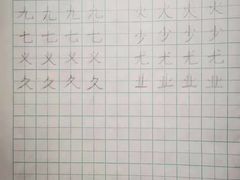 九 九 九 九 火 火 火 火
七 七 七 七 少 少 少 少
义 义 义 义 尤 尤 尤 尤
久 久 久 久 业 业 业 业